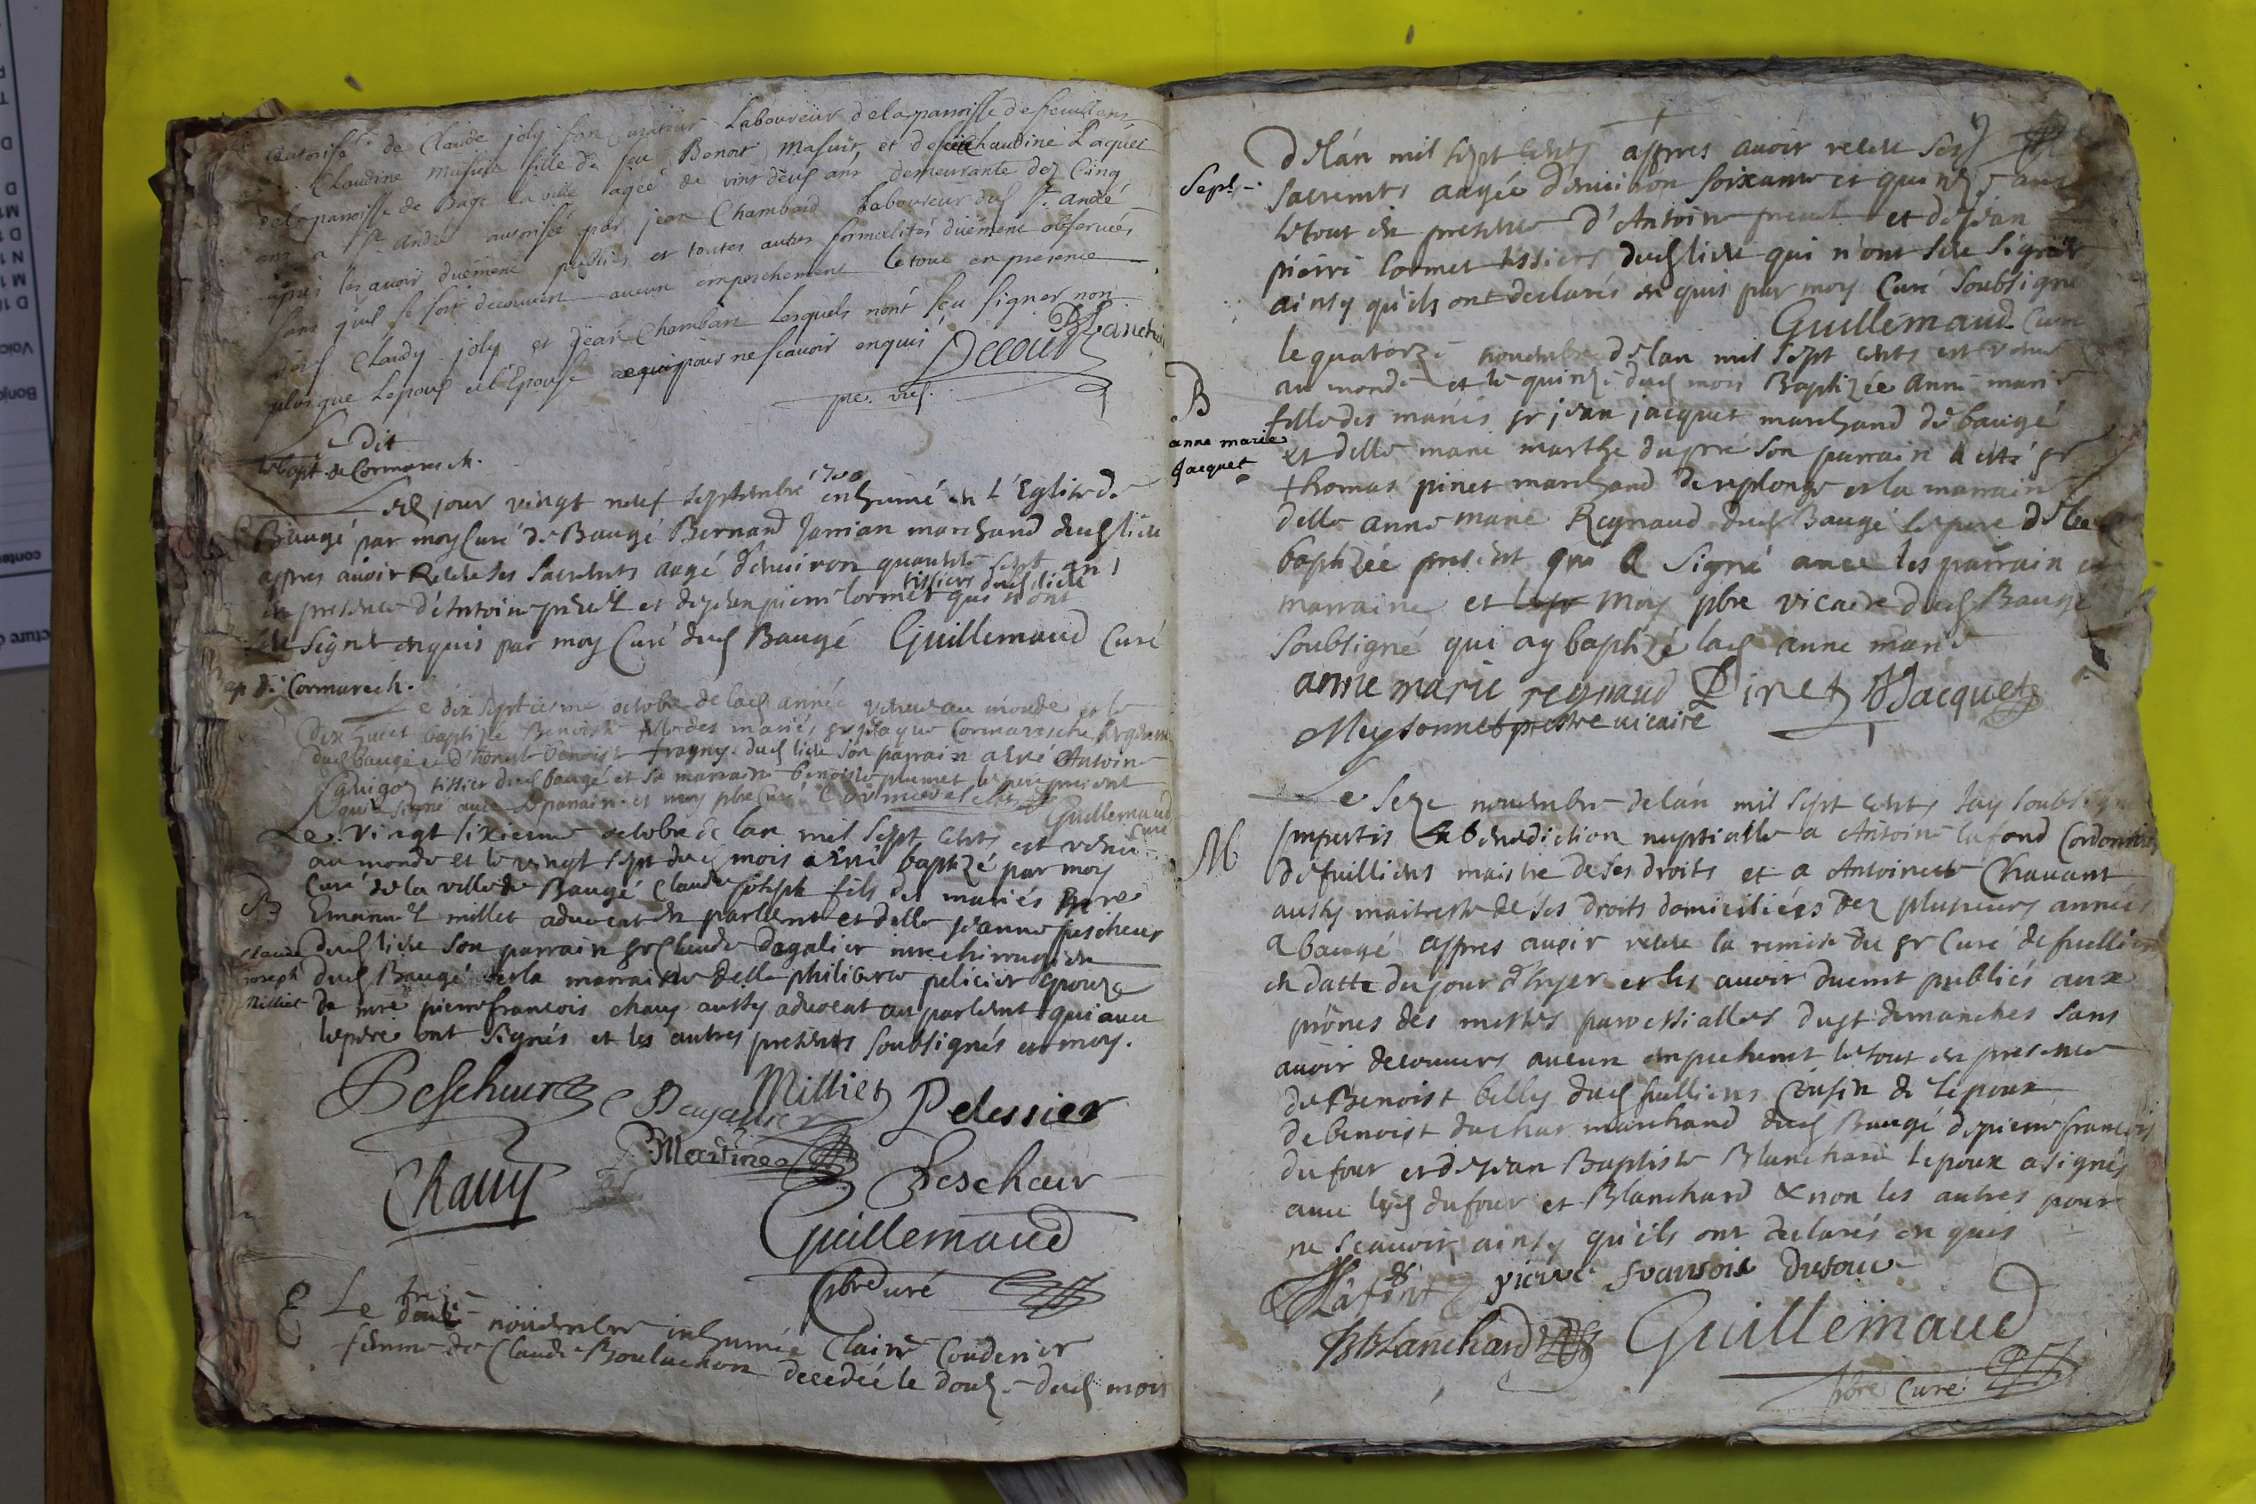 autorisé de Claude joly son Curateur Laboureur de la parroisse de feuillans
Claudine Masuir fille de feu Benoit Masuir, et de Claudine Paquier
de la parroisse de Bagé la ville agée de vint deus ans demeurante dez Cinq
ans a St andré autorisée par jean Chambard Laboureur dud St. andré
apres les avoir duement publiés et toutes autres formalités duement observées
sans quil se soit decouvert aucun empeschement le tout en presence
desd Claudy joly et jean Chambard Lesquels n'ont sçeu signer non
plus que Lepoux et l'Epouse pour ne scavoir enquis
Blanchard
Decour
pr. vic.
Ledit
Bapt. de Cormaresch.
Led jour vingt neuf septembre 1700 inhumé en l'Eglise de
Baugé par moy Curé de Baugé Bernard Jarrian marchand dud lieu
appres avoir Receu ses sacrements aagé d'environ quarente sept ans
en presence d'Antoine prevel et de jean pierre lormet tissiers dud lieu qui n'ont
sceu signer enquis par moy Curé dud Baugé Guillemaud Curé
Bap de Cormarech.
Le dix septiesme octobre de lad année est venue au monde et le
dix huict baptisée Benoiste fille des mariés sr jaque Cormaresche
dud baugé et d'honeste benoiste fragny dud lieu son parrain a esté Antoine
Guigoz tissier dud baugé et sa marraine benoiste plumet le pere present
qui a signé avec le parrain et moy pbre curé Cormaresche
Guillemaud
Curé
Le vingt sixieme octobre de lan mil sept cents est venu
au monde et le vingt sept dud mois a esté baptizé par moy
Curé de la ville de Baugé Claude joseph fils des mariés Mre
B
Emanuel millet advocat en parlement et delle jeanne pescheur
Claude
joseph
Milliet
dud lieu son parrain sr Claude Dagalier mre chirurgien
dud Baugé et la marraine delle philiberte pelicier epouze
de mre pierre françois chavy aussy advocat au parlement qui avec
le pere ont signés et les autres presents soubsignés et moy.
Pescheur
Dagallier
Milliet
Pelessier
Martine
Chavy
Pescheur
Guillemaud
pbre Curé
E
treize
Le douze novembre inhumée Claire Coudenier
femme de Claude Bouluchon decedée le douze dud mois
Sepl.
de lán mil sept cents appres avoir receu ses
sacrements aagée d'environ soixante et quinze ans
le tout en presence d'Antoine prevel et de jean
pierre lormet tissiers dud lieu qui n'ont sceu signer
ainsy qu'ils ont declarés enquis par moy Curé soubsigné
Guillemaud Curé
B
anne marie
Jacquet
le quatorze novembre de lan mil sept cents est venue
au monde et le quinze dud mois Baptizée Anne marie
fille des mariés sr jean jacquet marchand de baugé
et delle marie marthe dupré son parrain a esté sr
thomas pinet marchand de replonge et la marraine
delle anne marie Reynaud dud Baugé le pere de la
baptizée present qui a signé avec les parrain et
marraine et moy pbre vicaire dud Baugé
soubsigné qui ay baptizé lad anne marie
anne marie reynaud Pinet JJacquet
Meysonnet prestre vicaire
M
Le seze novembre de lán mil sept cents jay soubsigné
impertis la benediction nuptialle a Antoine lafond Cordonnier
de fuilliens maistre de ses droits et a Antoinette Chavant
aussy maitresse de ses droits domiciliées dez plusieurs années
a baugé appres avoir receu la remise du sr Curé de fuelliens
en datte du jour d'hyer et les avoir duemt publiés aux
prônes des messes paroessialles dust dimanches sans
avoir decouvers aucun empechemt le tout en presence
de Benoist belly dud fuilliens Cousin de lepoux
de benoist duchas marchand dud Baugé de pierre françois
dufour et de jean Baptiste Blanchard lepoux a signés
avec lesd dufour et Blanchard & non les autres pour
ne sçavoir ainsy qu'ils ont declarés enquis
Lafont pierre fransois Dufour
JBBlanchard Guillemaud
pbre Curé